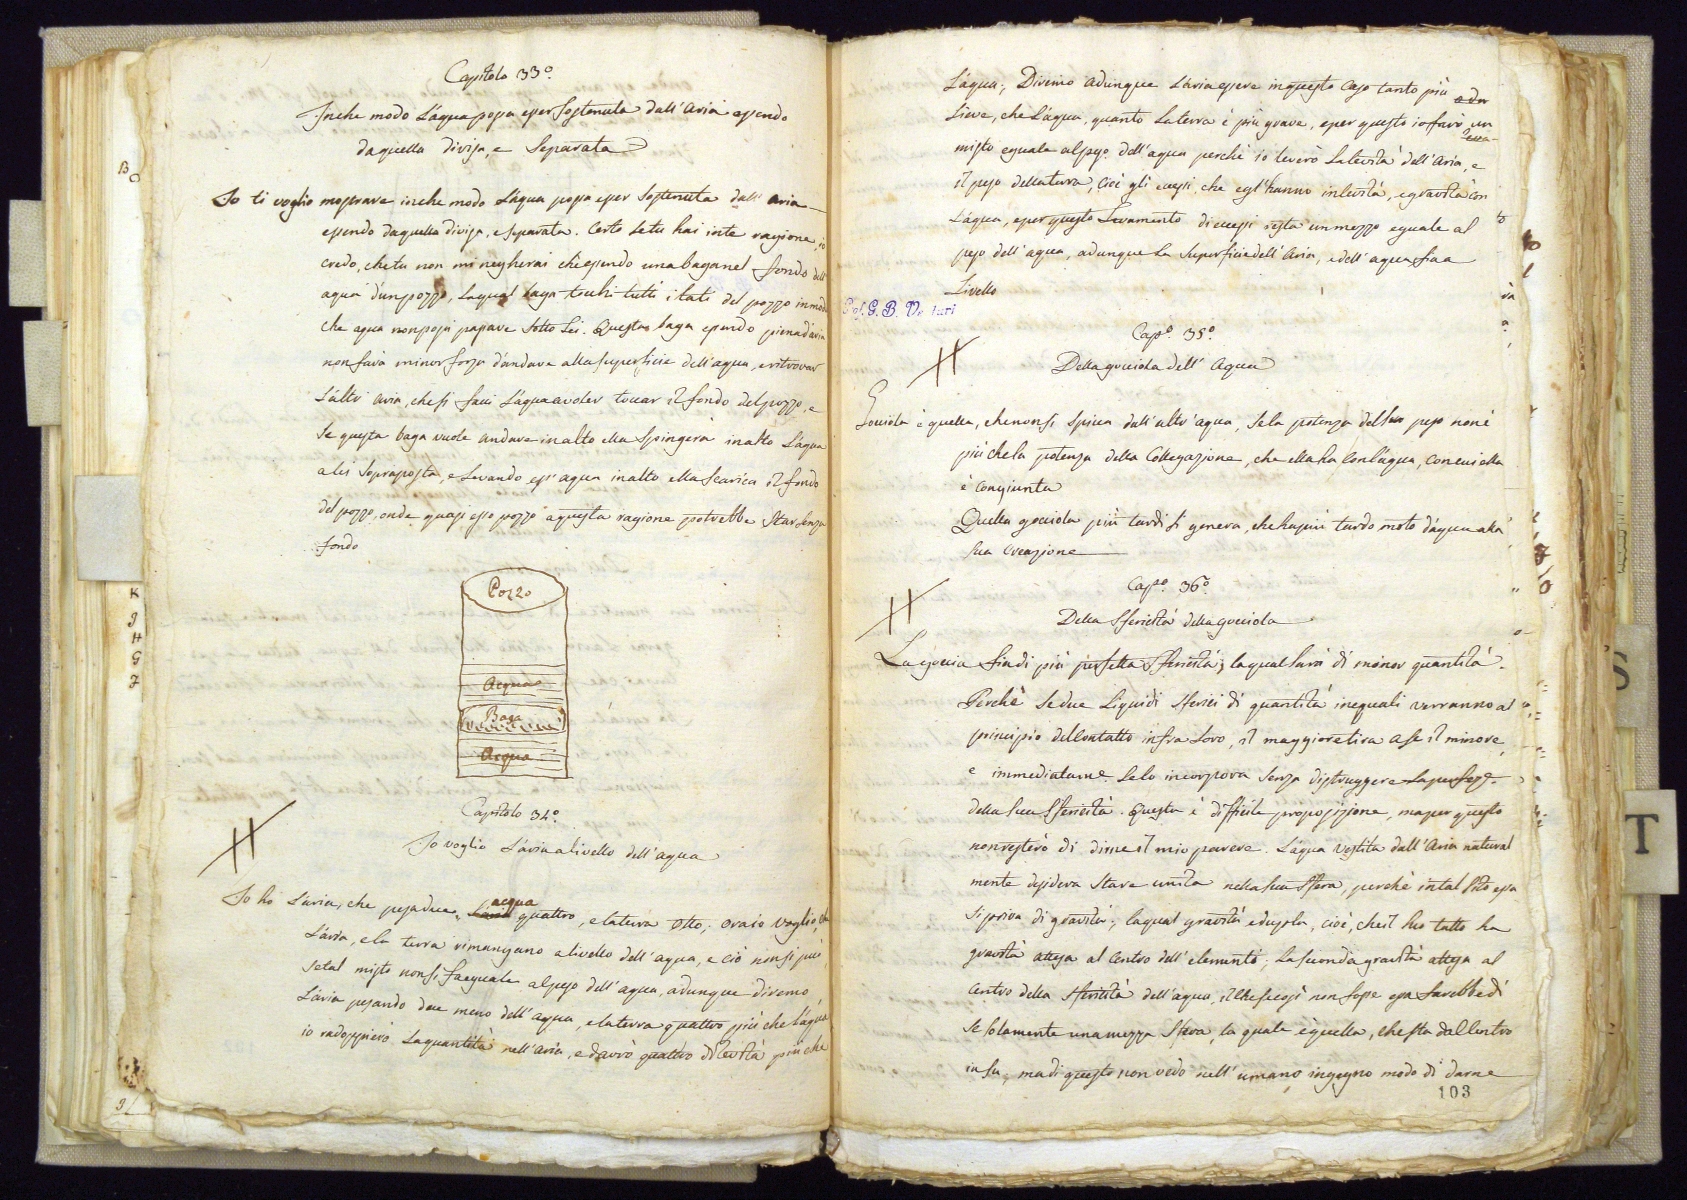 Capitolo 33º.
Inche modo L'aqua possa esser sostenuta dall'Aria essendo
daquella divisa, e Separata
Io ti voglio mostrare inche modo L'aqua possa esser sostenuta dall'aria
essendo daquella divisa, e separata. Certo setu hai inte ragione, io
credo, chetu non mi negherai ch'essendo una baga nel fondo dell'
aqua d'unpozzo, Laqual baga tochi tutti i lati del pozzo inmodo
che aqua nonpossi passare sotto Lei. Questa baga essendo pienad'aria
non farà minor forza d'andare alla superficie dell'aqua, eritrovar
L'altr'aria, chesi facci L'aqua avoler toccar il fondo del pozzo, e
se questa baga vuole andare inalto ella spingerà inalto L'aqua
a lei Sopraposta, e Levando ess'aqua inalto ella scarica il fondo
del pozzo, onde quasi esso pozzo aquesta ragione potrebbe star senza
fondo
Pozzo
Acqua
Baga
Acqua
Capitolo 34º.
Io voglio L'aria alivello dell'aqua
Io ho L'aria, che pesa due, L'aria acqua quattro, e laterra otto; oraio voglio, che
L'aria, e la terra rimangano alivello dell'aqua, e ciò nonsi può,
setal misto nonsi fa eguale alpeso dell'aqua, adunque diremo
L'aria pesando due meno dell'aqua, e laterra quattro più che L'aqua
io radoppierò Laquantità nell'Aria, ed avrò quattro di levità più che
L'aqua; Diremo adunque L'aria essere inquesto caso tanto più
Lieve, che L'aqua, quanto La terra è più grave, e per questo io farò un
misto eguale alpeso dell'aqua perchè io leverò La levità dell'Aria, e
il peso dellaterra, cioè gli ecessi, che egl'hanno inlevità, e gravità con
L'aqua, e per questo Levamento diecessi resta unmezzo eguale al
peso dell'aqua, adunque La Superficie dell'Aria, e dell'aqua fia a
Livello
Prof. G. B. Venturi
Capº. 35º.
Della gocciola dell'Aqua
Gocciola è quella, che nonsi spicca dall'altr'aqua, se la potenza del suo peso non è
più che la potenza della Collegazione, che ella ha conl'aqua, concui ella
è congiunta
Quella gocciola più tardi si genera, che ha più tardo moto d'aqua alla
sua creazione
Capº. 36º.
Della Sfericità della gocciola
La goccia fia di più perfetta Sfericità, la qual sarà di minor quantità.
Perchè se due Liquidi sferici di quantità inequali verranno al
principio delContatto infra Loro, il maggiore tira a se il minore,
e immediatame. se lo incorpora senza distruggere La perfezze.
della sua Sfericità. Questa è difficile proposizione, ma per questo
nonresterò di dirne il mio parere. L'aqua vestita dall'Aria natural
mente desidera stare unita nella sua Sfera, perchè in tal sito essa
si priva di gravità; la qual gravità è dupla, cioè, che il suo tutto ha
gravità attesa al Centro dell'elementi; La seconda gravità attesa al
Centro della Sfericità dell'aqua, ilche secosì non fosse essa farebbe di
se solamente una mezza Sfera, la quale è quella, che sta dal Centro
in su; ma di questo non vedo nell'umano ingegno modo di darne
103
K
I
H
G
F
S
T